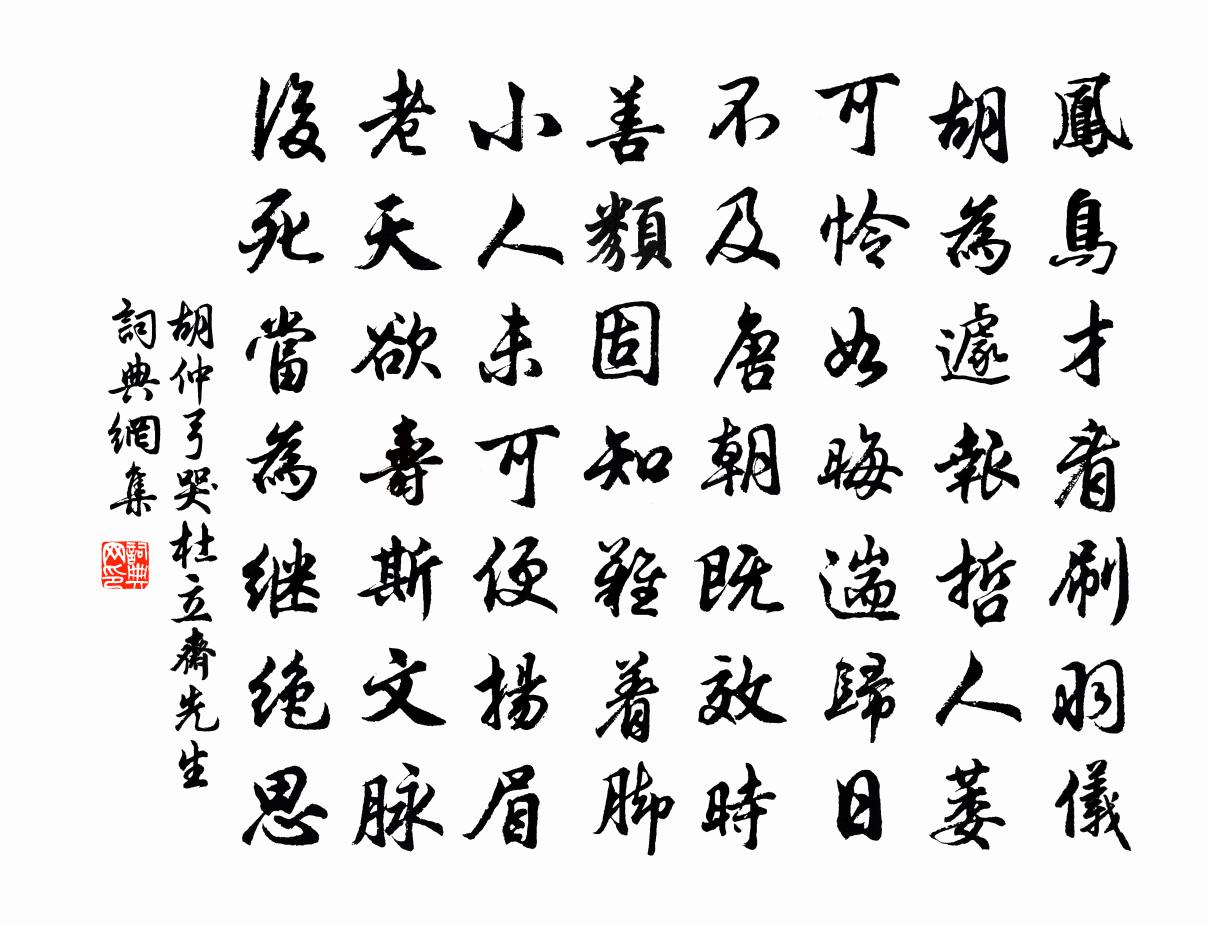 鳳鳥才看刷羽儀
胡為遽報哲人萎
可怜如晦遄歸日
不及唐朝既效時
善類固知難着脚
小人未可便揚眉
老天欲壽斯文脉
後死當為继绝思
胡仲弓哭杜立齋先生
詞典網集
詞典网印